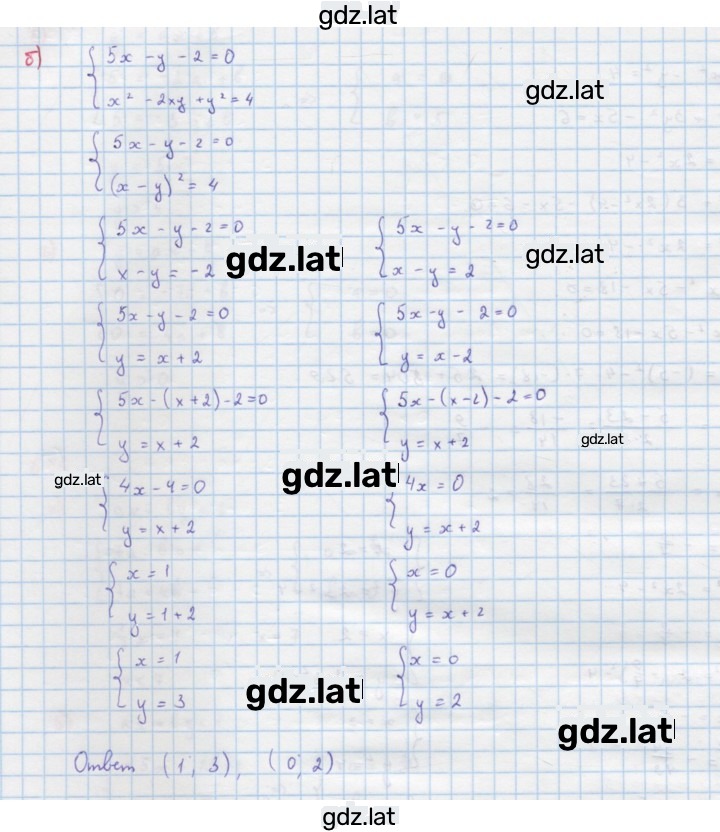 gdz.lat
б) 5x - y - 2 = 0
x² - 2xy + y² = 4
gdz.lat
5x - y - 2 = 0
(x - y)² = 4
5x - y - 2 = 0
x - y = -2
gdz.lat
5x - y - 2 = 0
x - y = 2
gdz.lat
5x - y - 2 = 0
y = x + 2
5x - y - 2 = 0
y = x - 2
5x - (x + 2) - 2 = 0
y = x + 2
5x - (x - 2) - 2 = 0
y = x + 2
gdz.lat
gdz.lat
4x - 4 = 0
y = x + 2
gdz.lat
4x = 0
y = x + 2
x = 1
y = 1 + 2
x = 0
y = x + 2
x = 1
y = 3
gdz.lat
x = 0
y = 2
gdz.lat
Ответ (1; 3), (0; 2)
gdz.lat